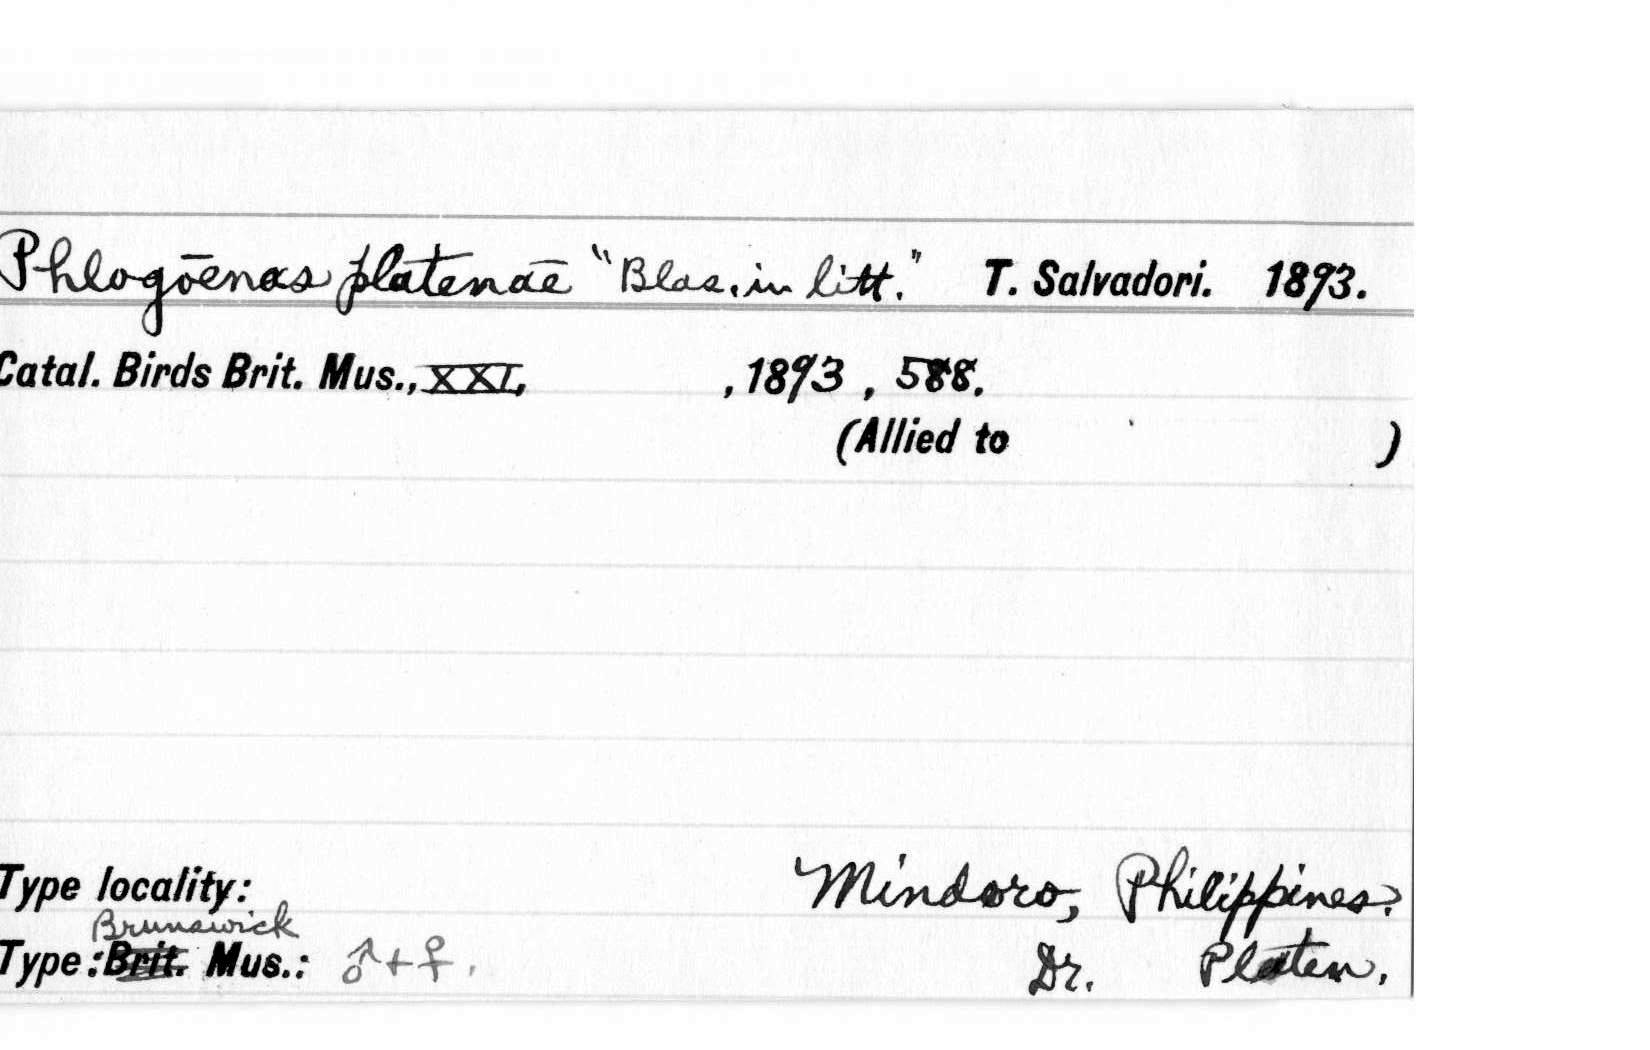 Phlogōenas platenāe "Blas. in litt." T. Salvadori. 1893.
Catal. Birds Brit. Mus., XXI, , 1893 , 588.
(Allied to )
Type locality: Mindoro, Philippines.
Brunswick
Type: Brit. Mus.: ♂+♀. Dr. Platen.